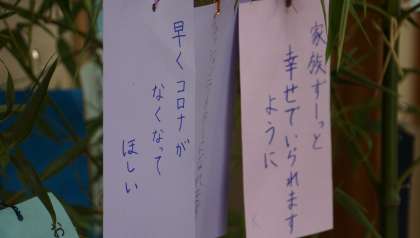 家族ずーっと
幸せでいられます
ように
早くコロナが
なくなって
ほしい